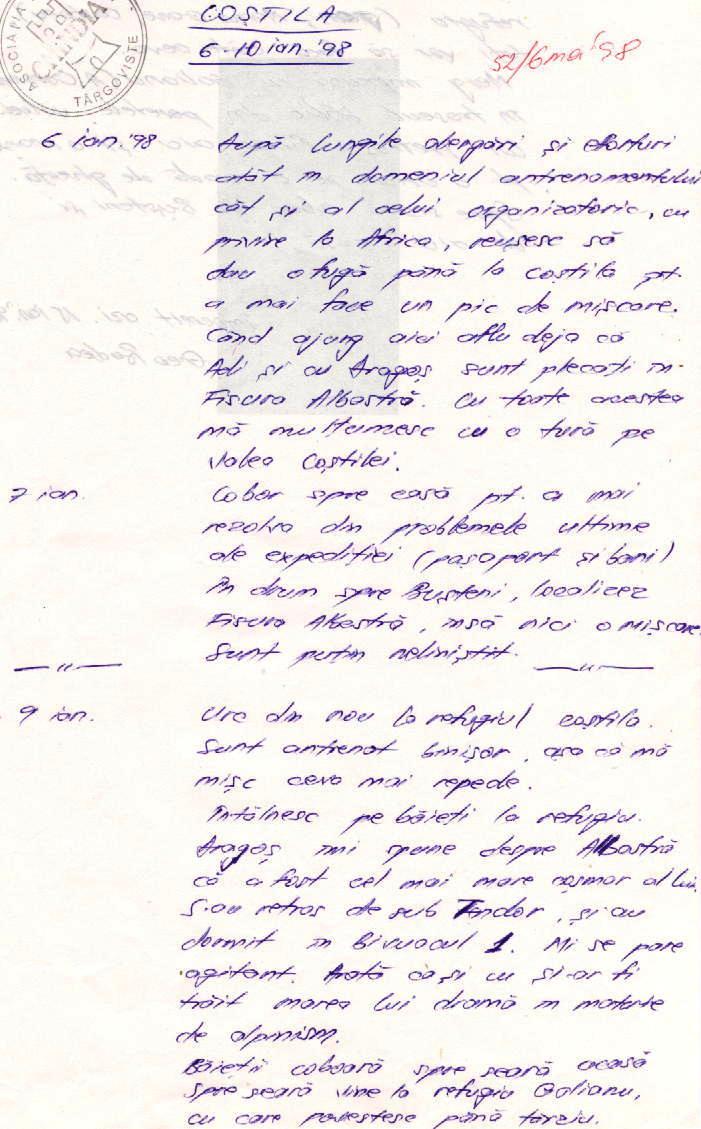 ASOCIAȚIA
CHINDIA
TÂRGOVIȘTE
COȘTILA
6-10 ian. '98
52/6 mai '98
6 ian. '98
După lungile alergări și eforturi
atât în domeniul antrenamentului
cât și al celui organizatoric, cu
privire la Africa, reușesc să
dau o fugă până la coștila pt.
a mai face un pic de mișcare.
Când ajung aici aflu deja că
Adi și cu Dragoș sunt plecați în
Fisura Albastră. Cu toate acestea
mă mulțumesc cu o tură pe
Valea Coștilei.
7 ian.
Cobor spre casă pt. a mai
rezolva din problemele ultime
ale expediției (pașaport și bani)
În drum spre Bușteni, localizez
Fisura Albastră, însă nici o mișcare.
Sunt puțin neliniștit.
—"— —"—
9 ian.
Urc din nou la refugiul coștila.
Sunt antrenat binișor, așa că mă
mișc ceva mai repede.
Întâlnesc pe băieți la refugiu.
Dragoș îmi spune despre Albastră
că a fost cel mai mare coșmar al lui.
S-au retras de sub Tandor, și au
dormit în Bivuacul 1. Mi se pare
agitant. Arată ca și cu și-ar fi
trăit marea lui dramă în materie
de alpinism.
Băieții coboară spre seară acasă
spre seară vine la refugiu Golianu,
cu care povestesc până târziu.